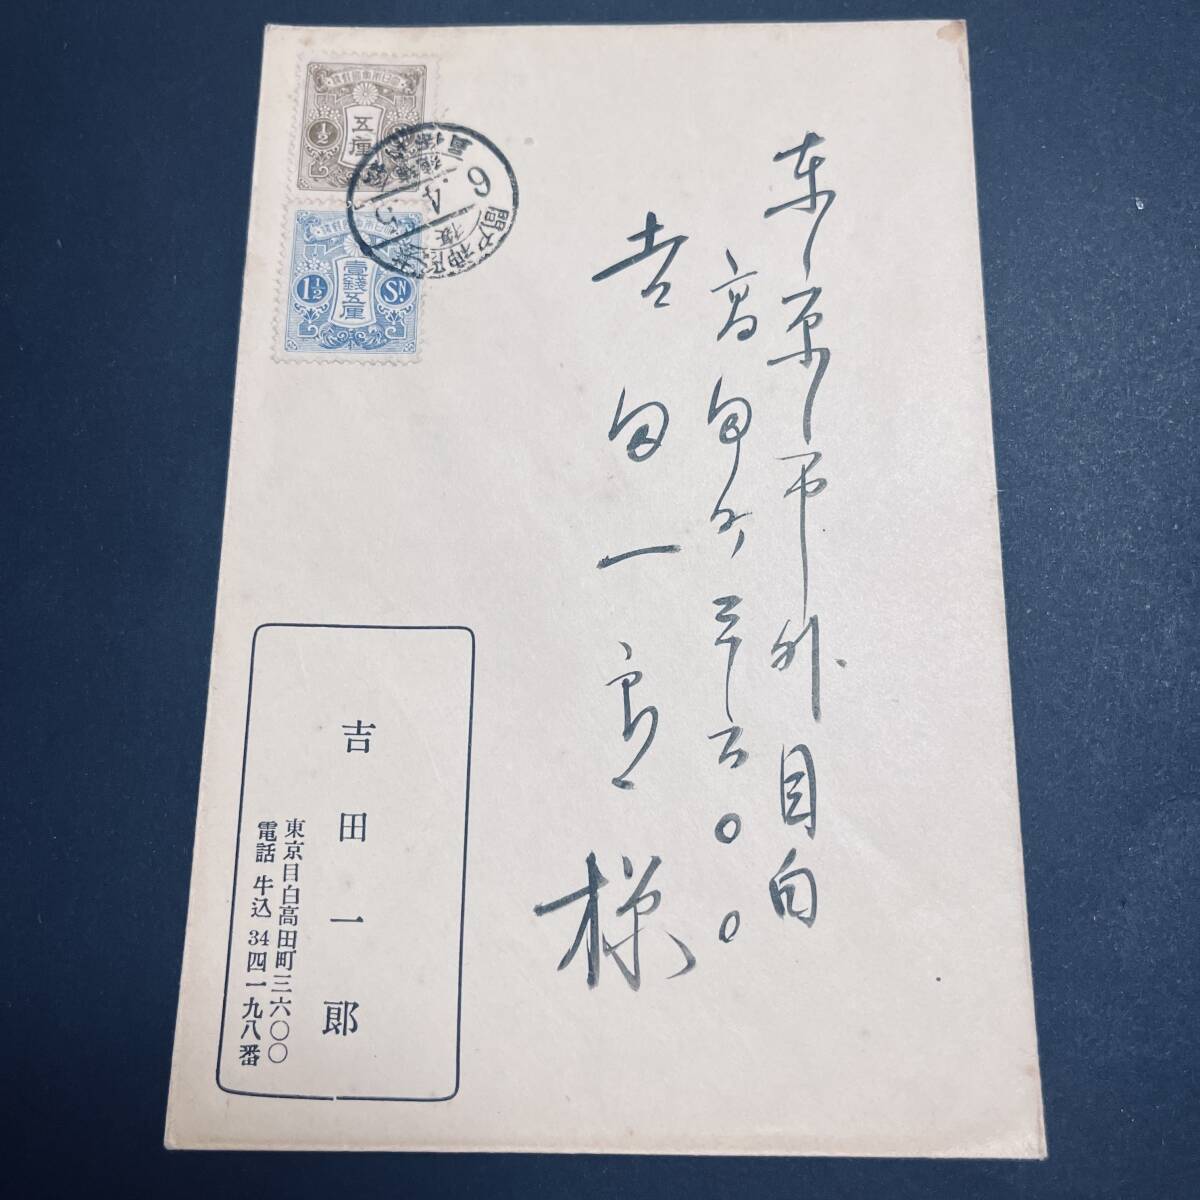 東京市外目白
高田町三六〇〇
吉田一郎様
吉田一郎
東京目白高田町三六〇〇
電話 牛込 34 四一九八番
大日本帝國郵便
五厘
½
大日本帝國郵便
壹錢五厘
1½ Sn.
6 4 5